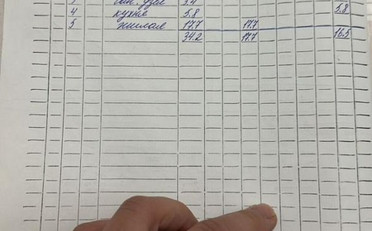 3 сан. узел 3.4
4 кухня 5.8 5.8
5 жилая 17.7 17.7
34.2 17.7 16.5